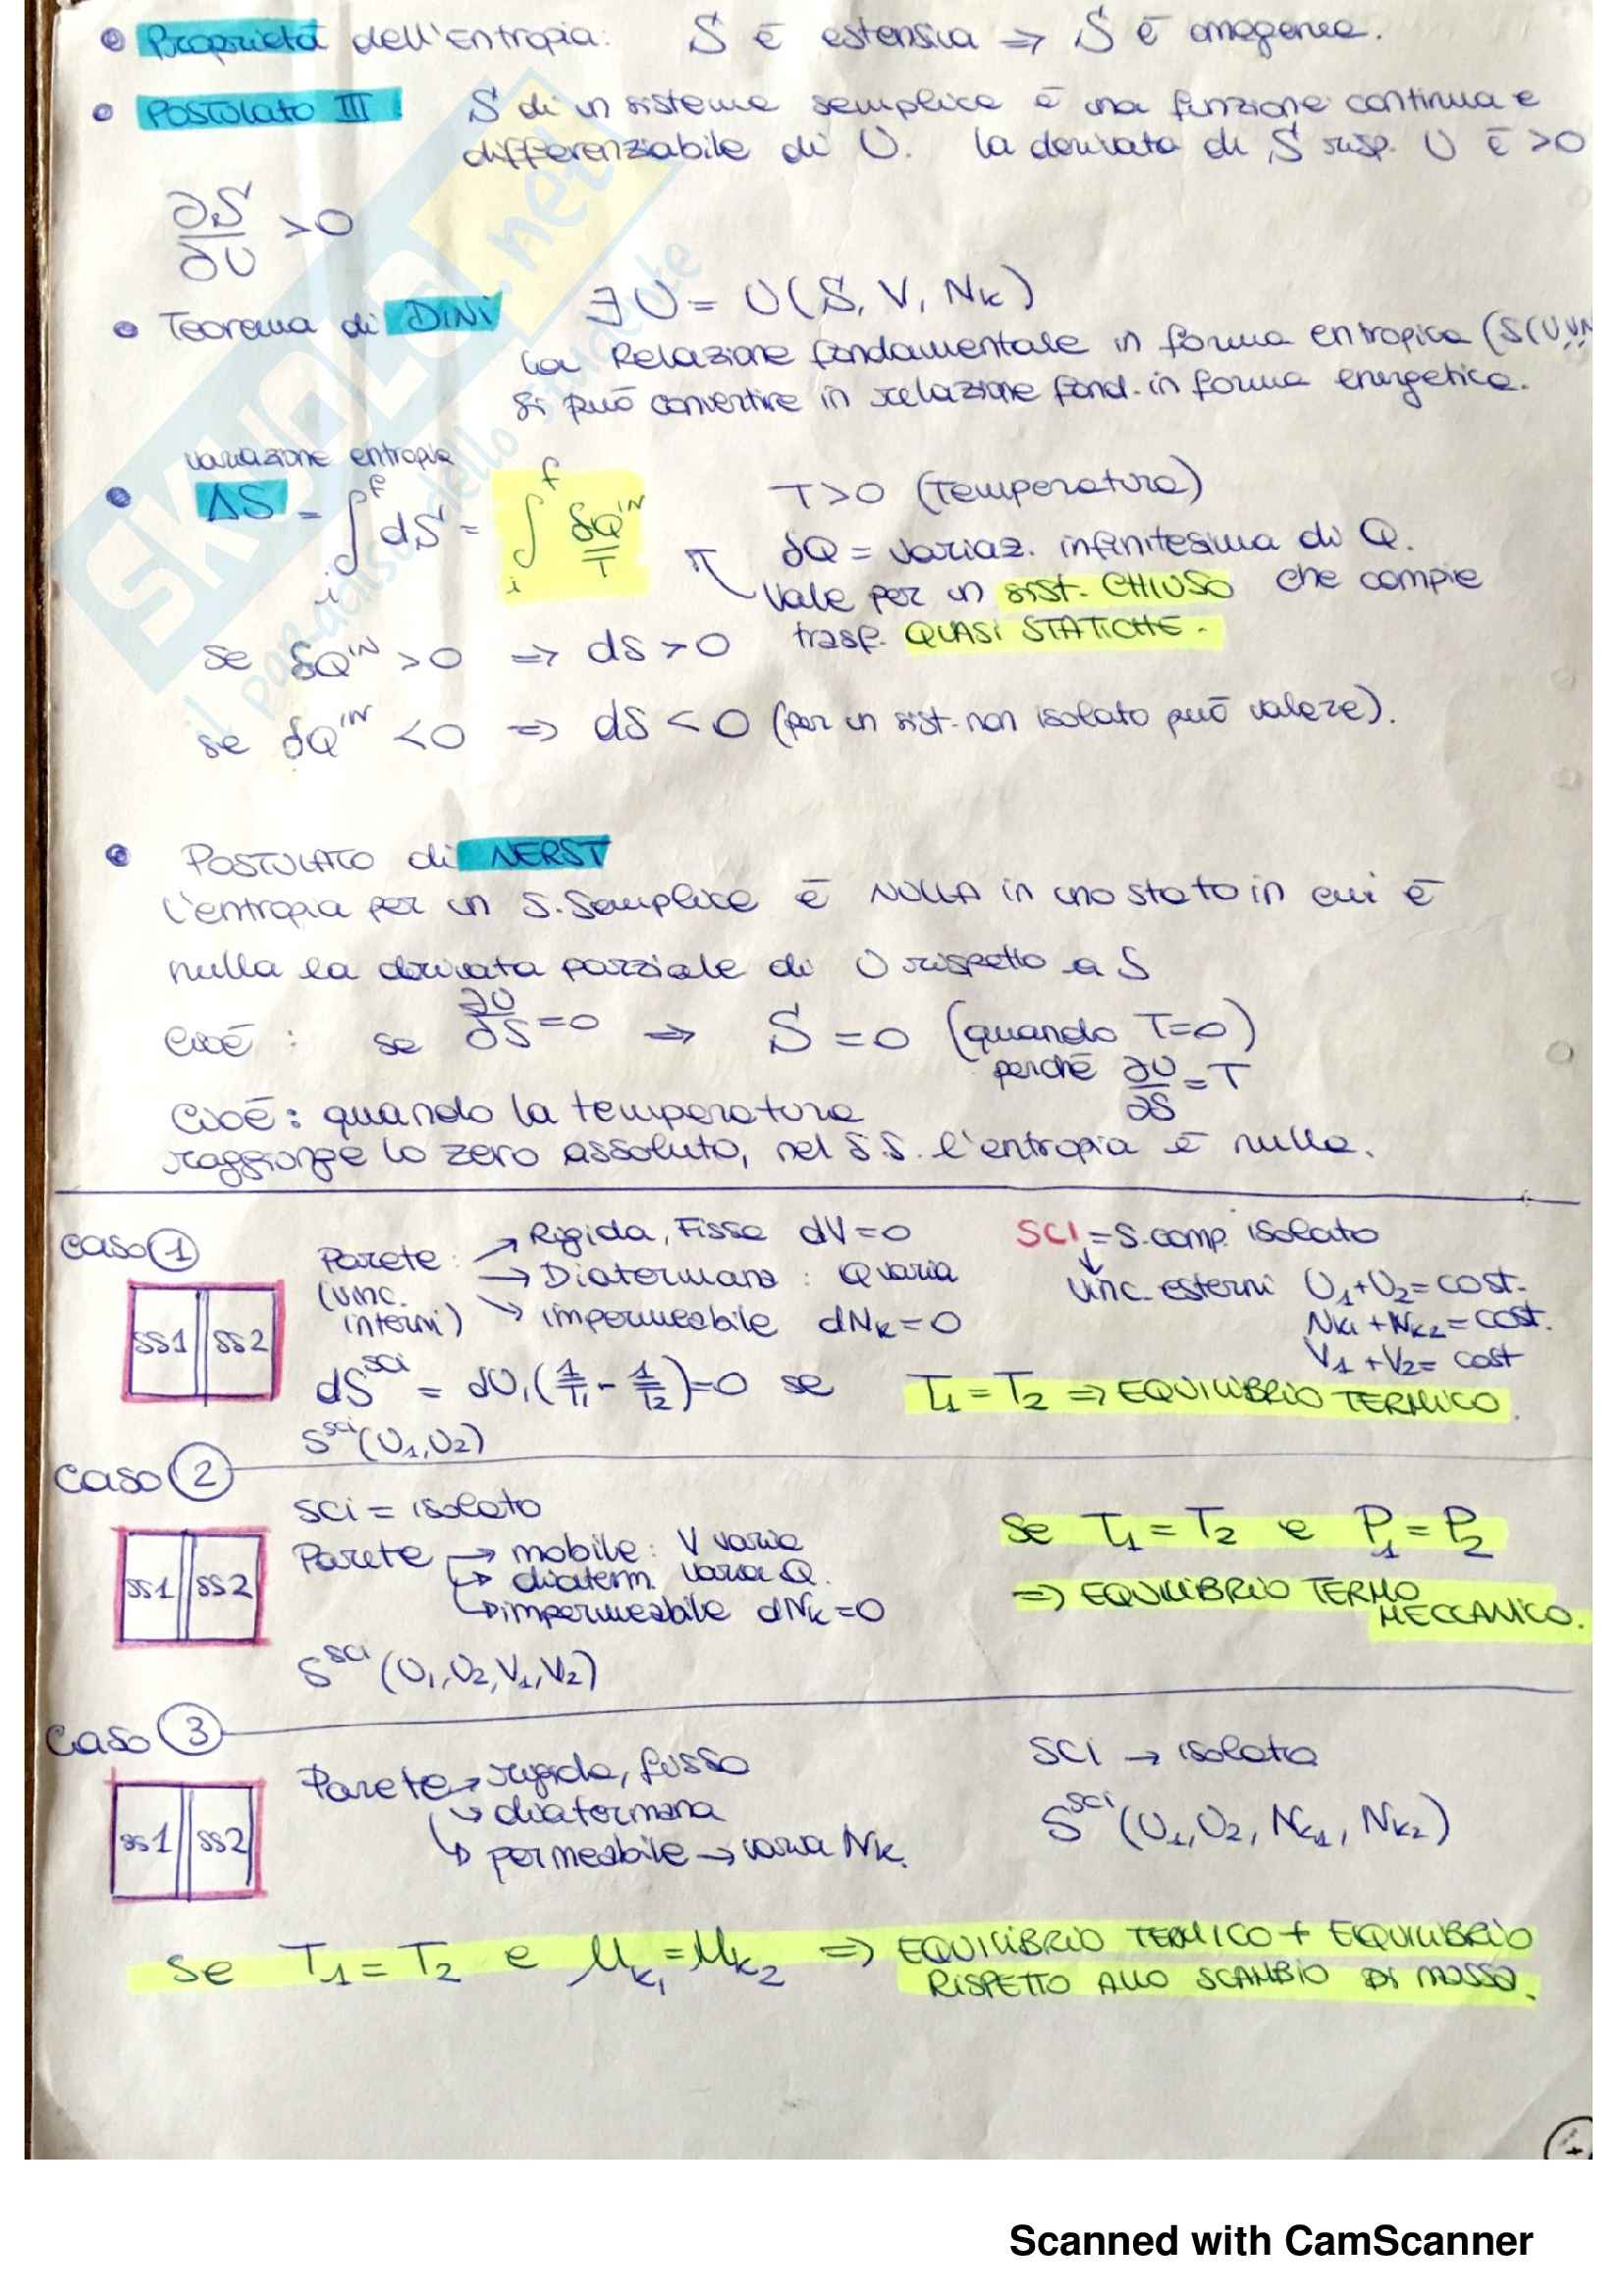 Proprietà dell'Entropia: S è estensiva ⇒ S è omogenea.
POSTULATO III: S di un sistema semplice è una funzione continua e
differenziabile di U. la derivata di S risp. U è >0
∂S/∂U > 0
Teorema di DINI ∃ U = U(S, V, Nk)
La Relazione fondamentale in forma entropica (S(U,V,N
si può convertire in relazione fond. in forma energetica.
variazione entropia
ΔS = ∫ᵢᶠ dS = ∫ᵢᶠ δQ^IN/T
T>0 (Temperatura)
δQ = variaz. infinitesima di Q.
Vale per un sist. CHIUSO che compie
trasf. QUASI STATICHE.
se δQ^IN >0 ⇒ dS > 0
se δQ^IN <0 ⇒ dS < 0 (per un sist. non isolato può valere).
POSTULATO di NERST
L'entropia per un S. Semplice è NULLA in uno stato in cui è
nulla la derivata parziale di U rispetto a S
Cioè: se ∂U/∂S = 0 ⇒ S = 0 (quando T=0)
perché ∂U/∂S = T
Cioè: quando la temperatura
raggiunge lo zero assoluto, nel S.S. l'entropia è nulla.
Caso 1
SS1 SS2
Parete: → Rigida, Fissa dV=0
(vinc. interni) → Diatermana: Q varia
→ impermeabile dNk=0
SCI = S. comp. isolato
↓ vinc. esterni U₁+U₂=cost.
Nk1 + Nk2 = cost.
V₁ + V₂ = cost
dS^SCI = dU₁(1/T₁ - 1/T₂)=0 se T₁ = T₂ ⇒ EQUILIBRIO TERMICO.
S^SCI(U₁,U₂)
Caso 2
SS1 SS2
SCI = isolato
Parete → mobile: V varia
↳ diaterm. varia Q.
↳ impermeabile dNk=0
S^SCI (U₁,U₂,V₁,V₂)
Se T₁ = T₂ e P₁ = P₂
⇒ EQUILIBRIO TERMO
MECCANICO.
Caso 3
SS1 SS2
Parete → rigida, fissa
↘ diatermana
↳ permeabile → varia Nk.
SCI → isolato
S^SCI (U₁,U₂, Nk1, Nk2)
Se T₁ = T₂ e μk1 = μk2 ⇒ EQUILIBRIO TERMICO + EQUILIBRIO
RISPETTO ALLO SCAMBIO DI MASSA.
SKUOLA.net
il paradiso dello studente
Scanned with CamScanner